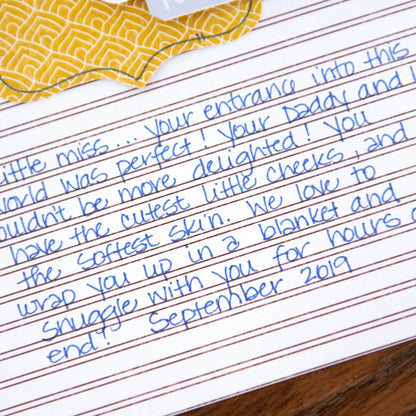 little miss... your entrance into this
world was perfect! Your Daddy and I
couldn't be more delighted! You
have the cutest little cheeks, and
the softest skin. We love to
wrap you up in a blanket and
snuggle with you for hours
end! September 2019